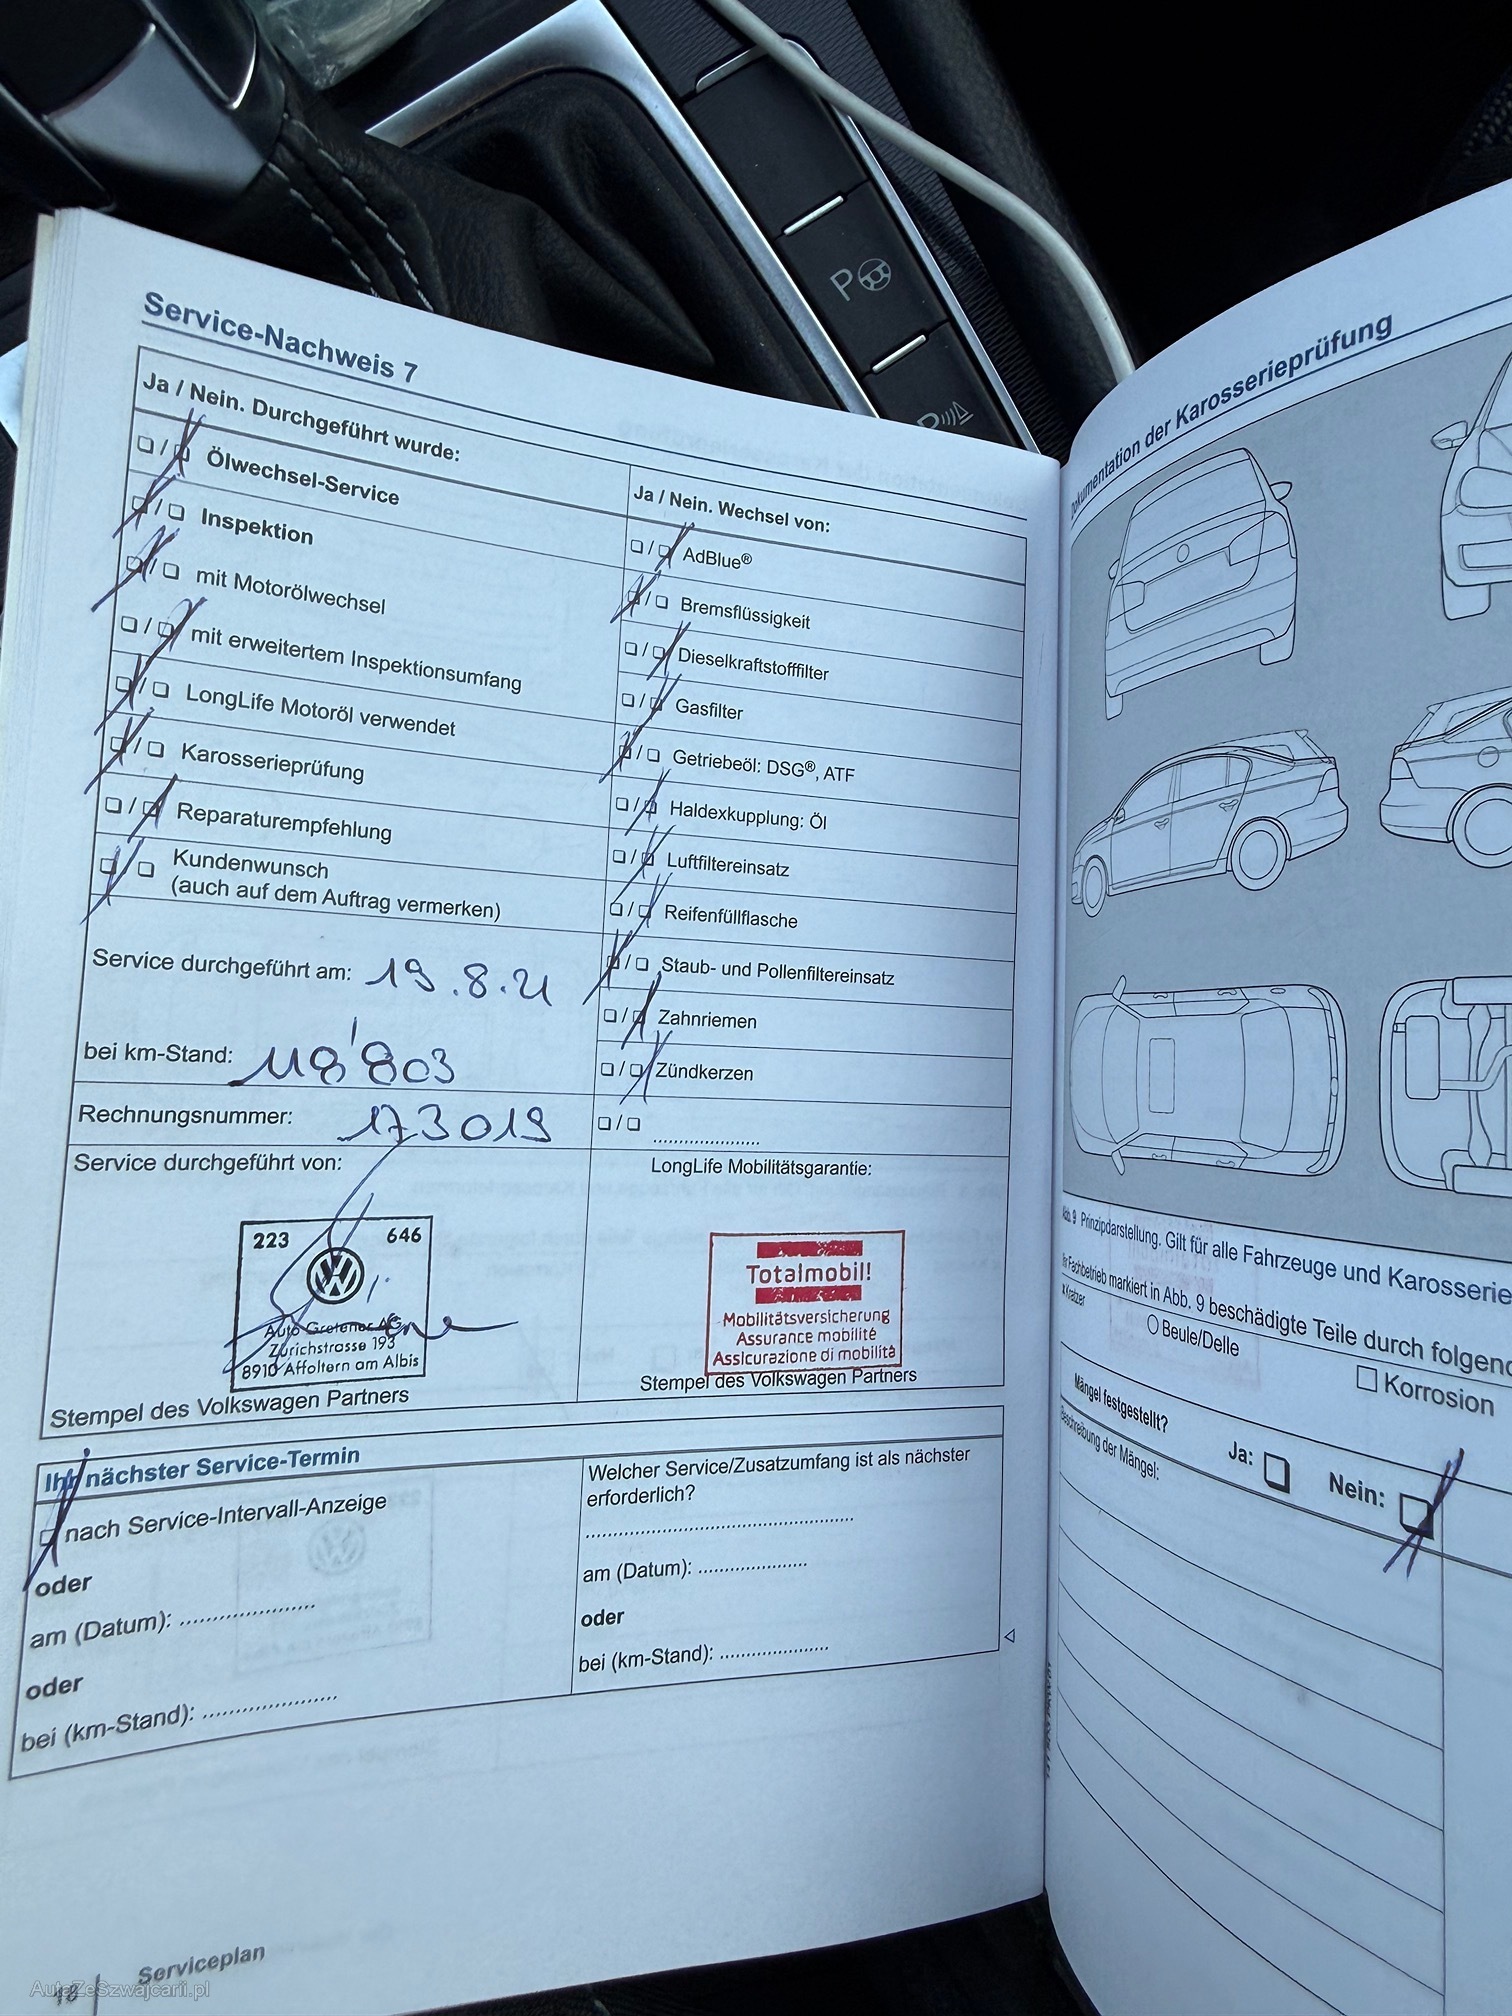 Service-Nachweis 7
Ja / Nein. Durchgeführt wurde:
Ölwechsel-Service
Inspektion
mit Motorölwechsel
mit erweitertem Inspektionsumfang
LongLife Motoröl verwendet
Karosserieprüfung
Reparaturempfehlung
Kundenwunsch
(auch auf dem Auftrag vermerken)
Service durchgeführt am: 19.8.21
bei km-Stand: 118'803
Rechnungsnummer: 173019
Ja / Nein. Wechsel von:
AdBlue®
Bremsflüssigkeit
Dieselkraftstofffilter
Gasfilter
Getriebeöl: DSG®, ATF
Haldexkupplung: Öl
Luftfiltereinsatz
Reifenfüllflasche
Staub- und Pollenfiltereinsatz
Zahnriemen
Zündkerzen
Service durchgeführt von:
223 646
Auto Gretener AG
Zürichstrasse 193
8910 Affoltern am Albis
Stempel des Volkswagen Partners
LongLife Mobilitätsgarantie:
Totalmobil!
Mobilitätsversicherung
Assurance mobilité
Assicurazione di mobilità
Stempel des Volkswagen Partners
Ihr nächster Service-Termin
nach Service-Intervall-Anzeige
oder
am (Datum):
oder
bei (km-Stand):
Welcher Service/Zusatzumfang ist als nächster
erforderlich?
am (Datum):
oder
bei (km-Stand):
Serviceplan
AutaZeSzwajcarii.pl
P
P
Dokumentation der Karosserieprüfung
Abb. 9 Prinzipdarstellung. Gilt für alle Fahrzeuge und Karosserie
Ihr Fachbetrieb markiert in Abb. 9 beschädigte Teile durch folgend
x Kratzer
Beule/Delle
Korrosion
Mängel festgestellt?
Ja:
Nein:
Beschreibung der Mängel: